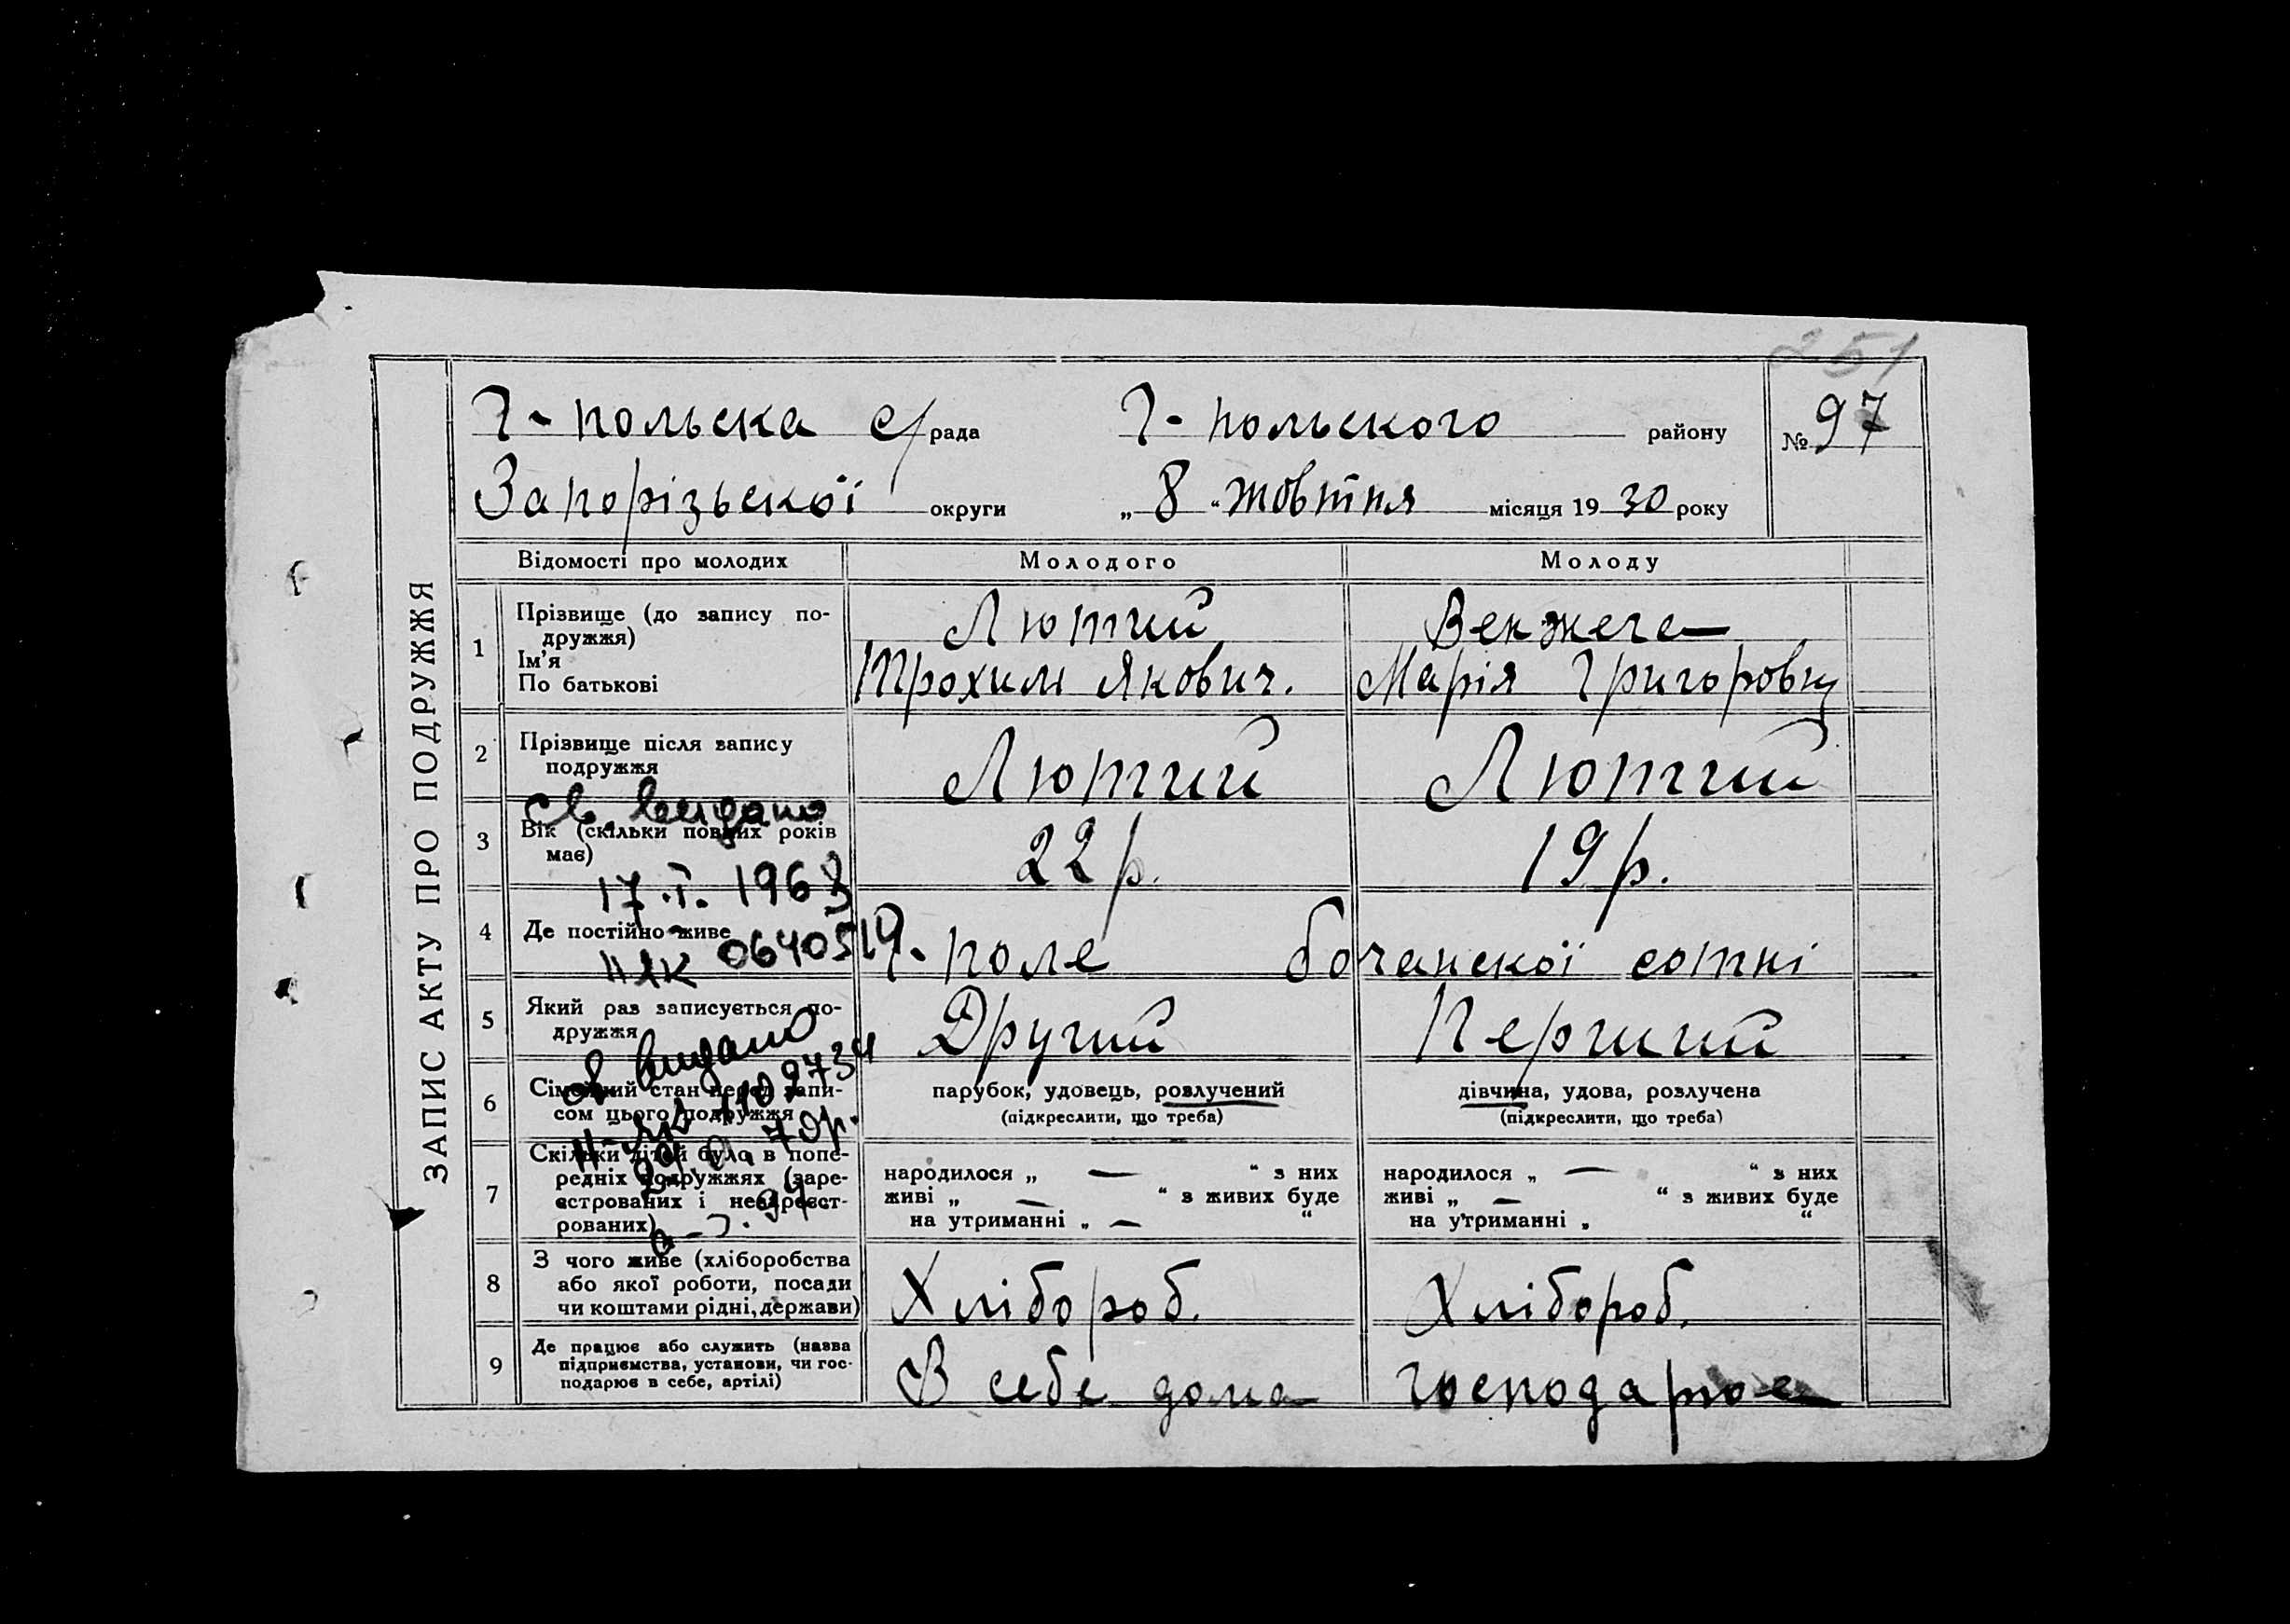 251
Г-польска с/рада Г-польского району № 97
Запорізьскої округи „8“ жовтня місяця 1930 року
ЗАПИС АКТУ ПРО ПОДРУЖЖЯ
Відомості про молодих Молодого Молоду
1 Прізвище (до запису по-
дружжя)
Ім'я
По батькові
Лютий
Трохим Якович.
Венжега
Марія Григоровн
2 Прізвище після запису
подружжя
Лютий Лютий
Св. видано
3 Вік (скільки повних років
має)
22 р. 19 р.
17.I. 1963
4 Де постійно живе
Г. поле бочанскої сотні
ІІ ЯК 0640519
5 Який раз записується по-
дружжя
Другий Перший
видано
6 Сімейний стан перед запи-
сом цього подружжя
парубок, удовець, розлучений
(підкреслити, що треба)
дівчина, удова, розлучена
(підкреслити, що треба)
7 Скільки дітей було в попе-
редніх подружжях (заре-
єстрованих і незареєст-
рованих)
народилося „ — “ з них
живі „ — “ з живих буде
на утриманні „ — “
народилося „ — “ з них
живі „ — “ з живих буде
на утриманні „ “
8 З чого живе (хліборобства
або якої роботи, посади
чи коштами рідні, держави)
Хлібороб. Хлібороб.
9 Де працює або служить (назва
підприємства, установи, чи гос-
подарює в себе, артілі)
В себе дома господарює